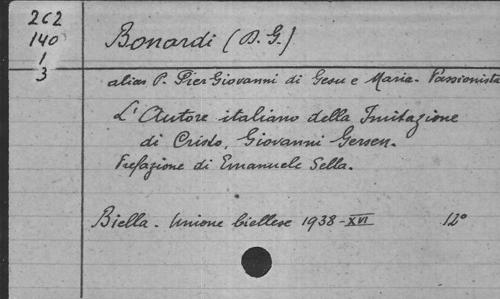 262
140
1
3
Bonardi (D. G.)
alias P. Pier Giovanni di Gesu e Maria - Passionista
L'Autore italiano della Imitazione
di Cristo, Giovanni Gersen.
Prefazione di Emanuele Sella.
Biella - Unione biellese 1938-XVI 12°